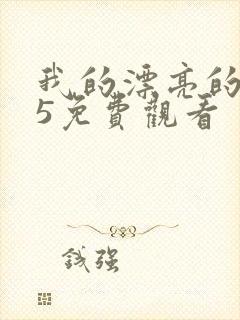 我的漂亮的
5免費觀看
钱强